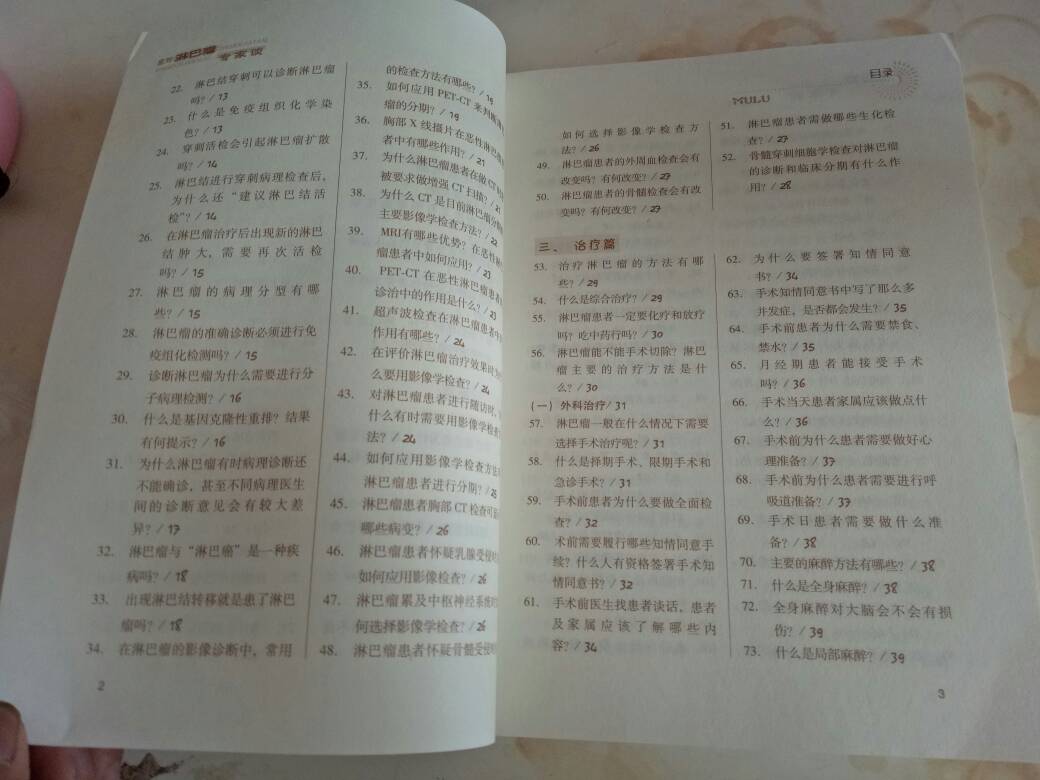 淋巴瘤
专家谈
22. 淋巴结穿刺可以诊断淋巴瘤
吗? / 13
23. 什么是免疫组织化学染
色? / 13
24. 穿刺活检会引起淋巴瘤扩散
吗? / 14
25. 淋巴结进行穿刺病理检查后,
为什么还“建议淋巴结活
检”? / 14
26. 在淋巴瘤治疗后出现新的淋巴
结肿大,需要再次活检
吗? / 15
27. 淋巴瘤的病理分型有哪
些? / 15
28. 淋巴瘤的准确诊断必须进行免
疫组化检测吗? / 15
29. 诊断淋巴瘤为什么需要进行分
子病理检测? / 16
30. 什么是基因克隆性重排? 结果
有何提示? / 16
31. 为什么淋巴瘤有时病理诊断还
不能确诊,甚至不同病理医生
间的诊断意见会有较大差
异? / 17
32. 淋巴瘤与“淋巴癌”是一种疾
病吗? / 18
33. 出现淋巴结转移就是患了淋巴
瘤吗? / 18
34. 在淋巴瘤的影像诊断中,常用
的检查方法有哪些? / 19
35. 如何应用 PET-CT 来判断淋巴
瘤的分期? / 19
36. 胸部 X 线摄片在恶性淋巴瘤
者中有哪些作用? / 21
37. 为什么淋巴瘤患者在做 CT
被要求做增强 CT 扫描? / 21
38. 为什么 CT 是目前淋巴瘤分期
主要影像学检查方法? / 22
39. MRI 有哪些优势? 在恶性
瘤患者中如何应用? / 23
40. PET-CT 在恶性淋巴瘤患者
诊治中的作用是什么? / 23
41. 超声波检查在淋巴瘤患者中
作用有哪些? / 24
42. 在评价淋巴瘤治疗效果时为
么要用影像学检查? / 24
43. 对淋巴瘤患者进行随访时,
什么有时需要用影像学检查
法? / 24
44. 如何应用影像学检查方法
淋巴瘤患者进行分期? / 25
45. 淋巴瘤患者胸部 CT 检查可
哪些病变? / 26
46. 淋巴瘤患者怀疑乳腺受侵
如何应用影像检查? / 26
47. 淋巴瘤累及中枢神经系统
何选择影像学检查? / 26
48. 淋巴瘤患者怀疑骨髓受侵
2
目录
MULU
如何选择影像学检查方
法? / 26
49. 淋巴瘤患者的外周血检查会有
改变吗? 有何改变? / 27
50. 淋巴瘤患者的骨髓检查会有改
变吗? 有何改变? / 27
51. 淋巴瘤患者需做哪些生化检
查? / 27
52. 骨髓穿刺细胞学检查对淋巴瘤
的诊断和临床分期有什么作
用? / 28
三、 治疗篇
53. 治疗淋巴瘤的方法有哪
些? / 29
54. 什么是综合治疗? / 29
55. 淋巴瘤患者一定要化疗和放疗
吗? 吃中药行吗? / 30
56. 淋巴瘤能不能手术切除? 淋巴
瘤主要的治疗方法是什
么? / 30
(一) 外科治疗 / 31
57. 淋巴瘤一般在什么情况下需要
选择手术治疗呢? / 31
58. 什么是择期手术、限期手术和
急诊手术? / 31
59. 手术前患者为什么要做全面检
查? / 32
60. 术前需要履行哪些知情同意手
续? 什么人有资格签署手术知
情同意书? / 32
61. 手术前医生找患者谈话,患者
及家属应该了解哪些内
容? / 34
62. 为什么要签署知情同意
书? / 34
63. 手术知情同意书中写了那么多
并发症,是否都会发生? / 35
64. 手术前患者为什么需要禁食、
禁水? / 35
65. 月经期患者能接受手术
吗? / 36
66. 手术当天患者家属应该做点什
么? / 36
67. 手术前为什么患者需要做好心
理准备? / 37
68. 手术前为什么患者需要进行呼
吸道准备? / 37
69. 手术日患者需要做什么准
备? / 38
70. 主要的麻醉方法有哪些? / 38
71. 什么是全身麻醉? / 38
72. 全身麻醉对大脑会不会有损
伤? / 39
73. 什么是局部麻醉? / 39
3